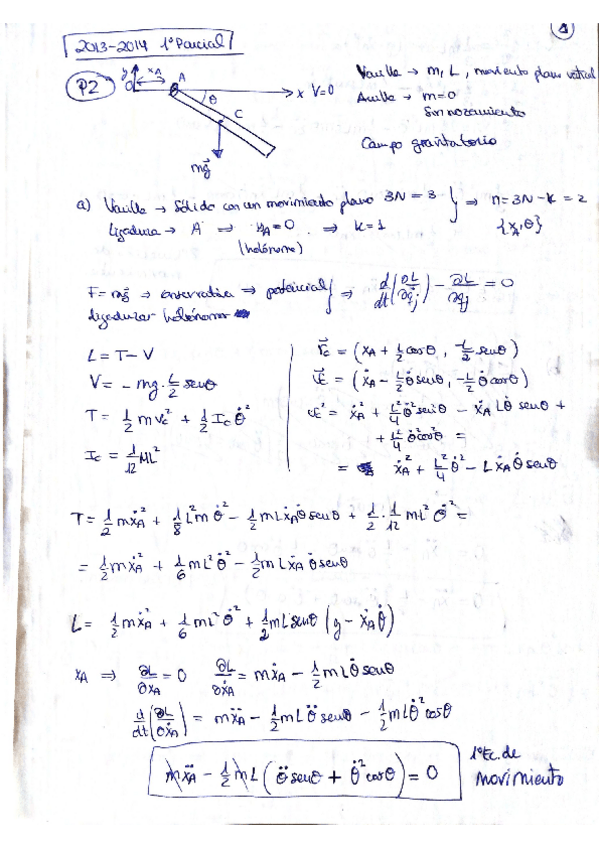 1
2013-2014 1º Parcial
P2
y x_A A
O → x V=0
θ
C
mg⃗
Varilla → m, L, movimiento plano vertical
Anilla → m=0
Sin rozamiento
Campo gravitatorio
a) Varilla → Sólido con un movimiento plano 3N = 3 } ⇒ n = 3N - k = 2
Ligadura → A ⇒ y_A = 0 ⇒ k = 1 {x_A, θ}
(holónomo)
F = mg⃗ ⇒ conservativa ⇒ potencial } ⇒ d/dt(∂L/∂q̇_j) - ∂L/∂q_j = 0
ligaduras holónomas
L = T - V
V = - mg · L/2 senθ
T = 1/2 m v_c² + 1/2 I_c θ̇²
I_c = 1/12 ML²
r⃗_c = (x_A + L/2 cosθ, -L/2 senθ)
v⃗_c = (ẋ_A - L/2 θ̇ senθ, -L/2 θ̇ cosθ)
v_c² = ẋ_A² + L²/4 θ̇² sen²θ - ẋ_A L θ̇ senθ +
+ L²/4 θ̇² cos²θ =
= ẋ_A² + L²/4 θ̇² - L ẋ_A θ̇ senθ
T = 1/2 m ẋ_A² + 1/8 L² m θ̇² - 1/2 m L ẋ_A θ̇ senθ + 1/2 · 1/12 m L² θ̇² =
= 1/2 m ẋ_A² + 1/6 m L² θ̇² - 1/2 m L ẋ_A θ̇ senθ
L = 1/2 m ẋ_A² + 1/6 m L² θ̇² + 1/2 m L senθ (g - ẋ_A θ̇)
x_A ⇒ ∂L/∂x_A = 0 ∂L/∂ẋ_A = m ẋ_A - 1/2 m L θ̇ senθ
d/dt(∂L/∂ẋ_A) = m ẍ_A - 1/2 m L θ̈ senθ - 1/2 m L θ̇² cosθ
m ẍ_A - 1/2 m L (θ̈ senθ + θ̇² cosθ) = 0
1º Ec. de
movimiento